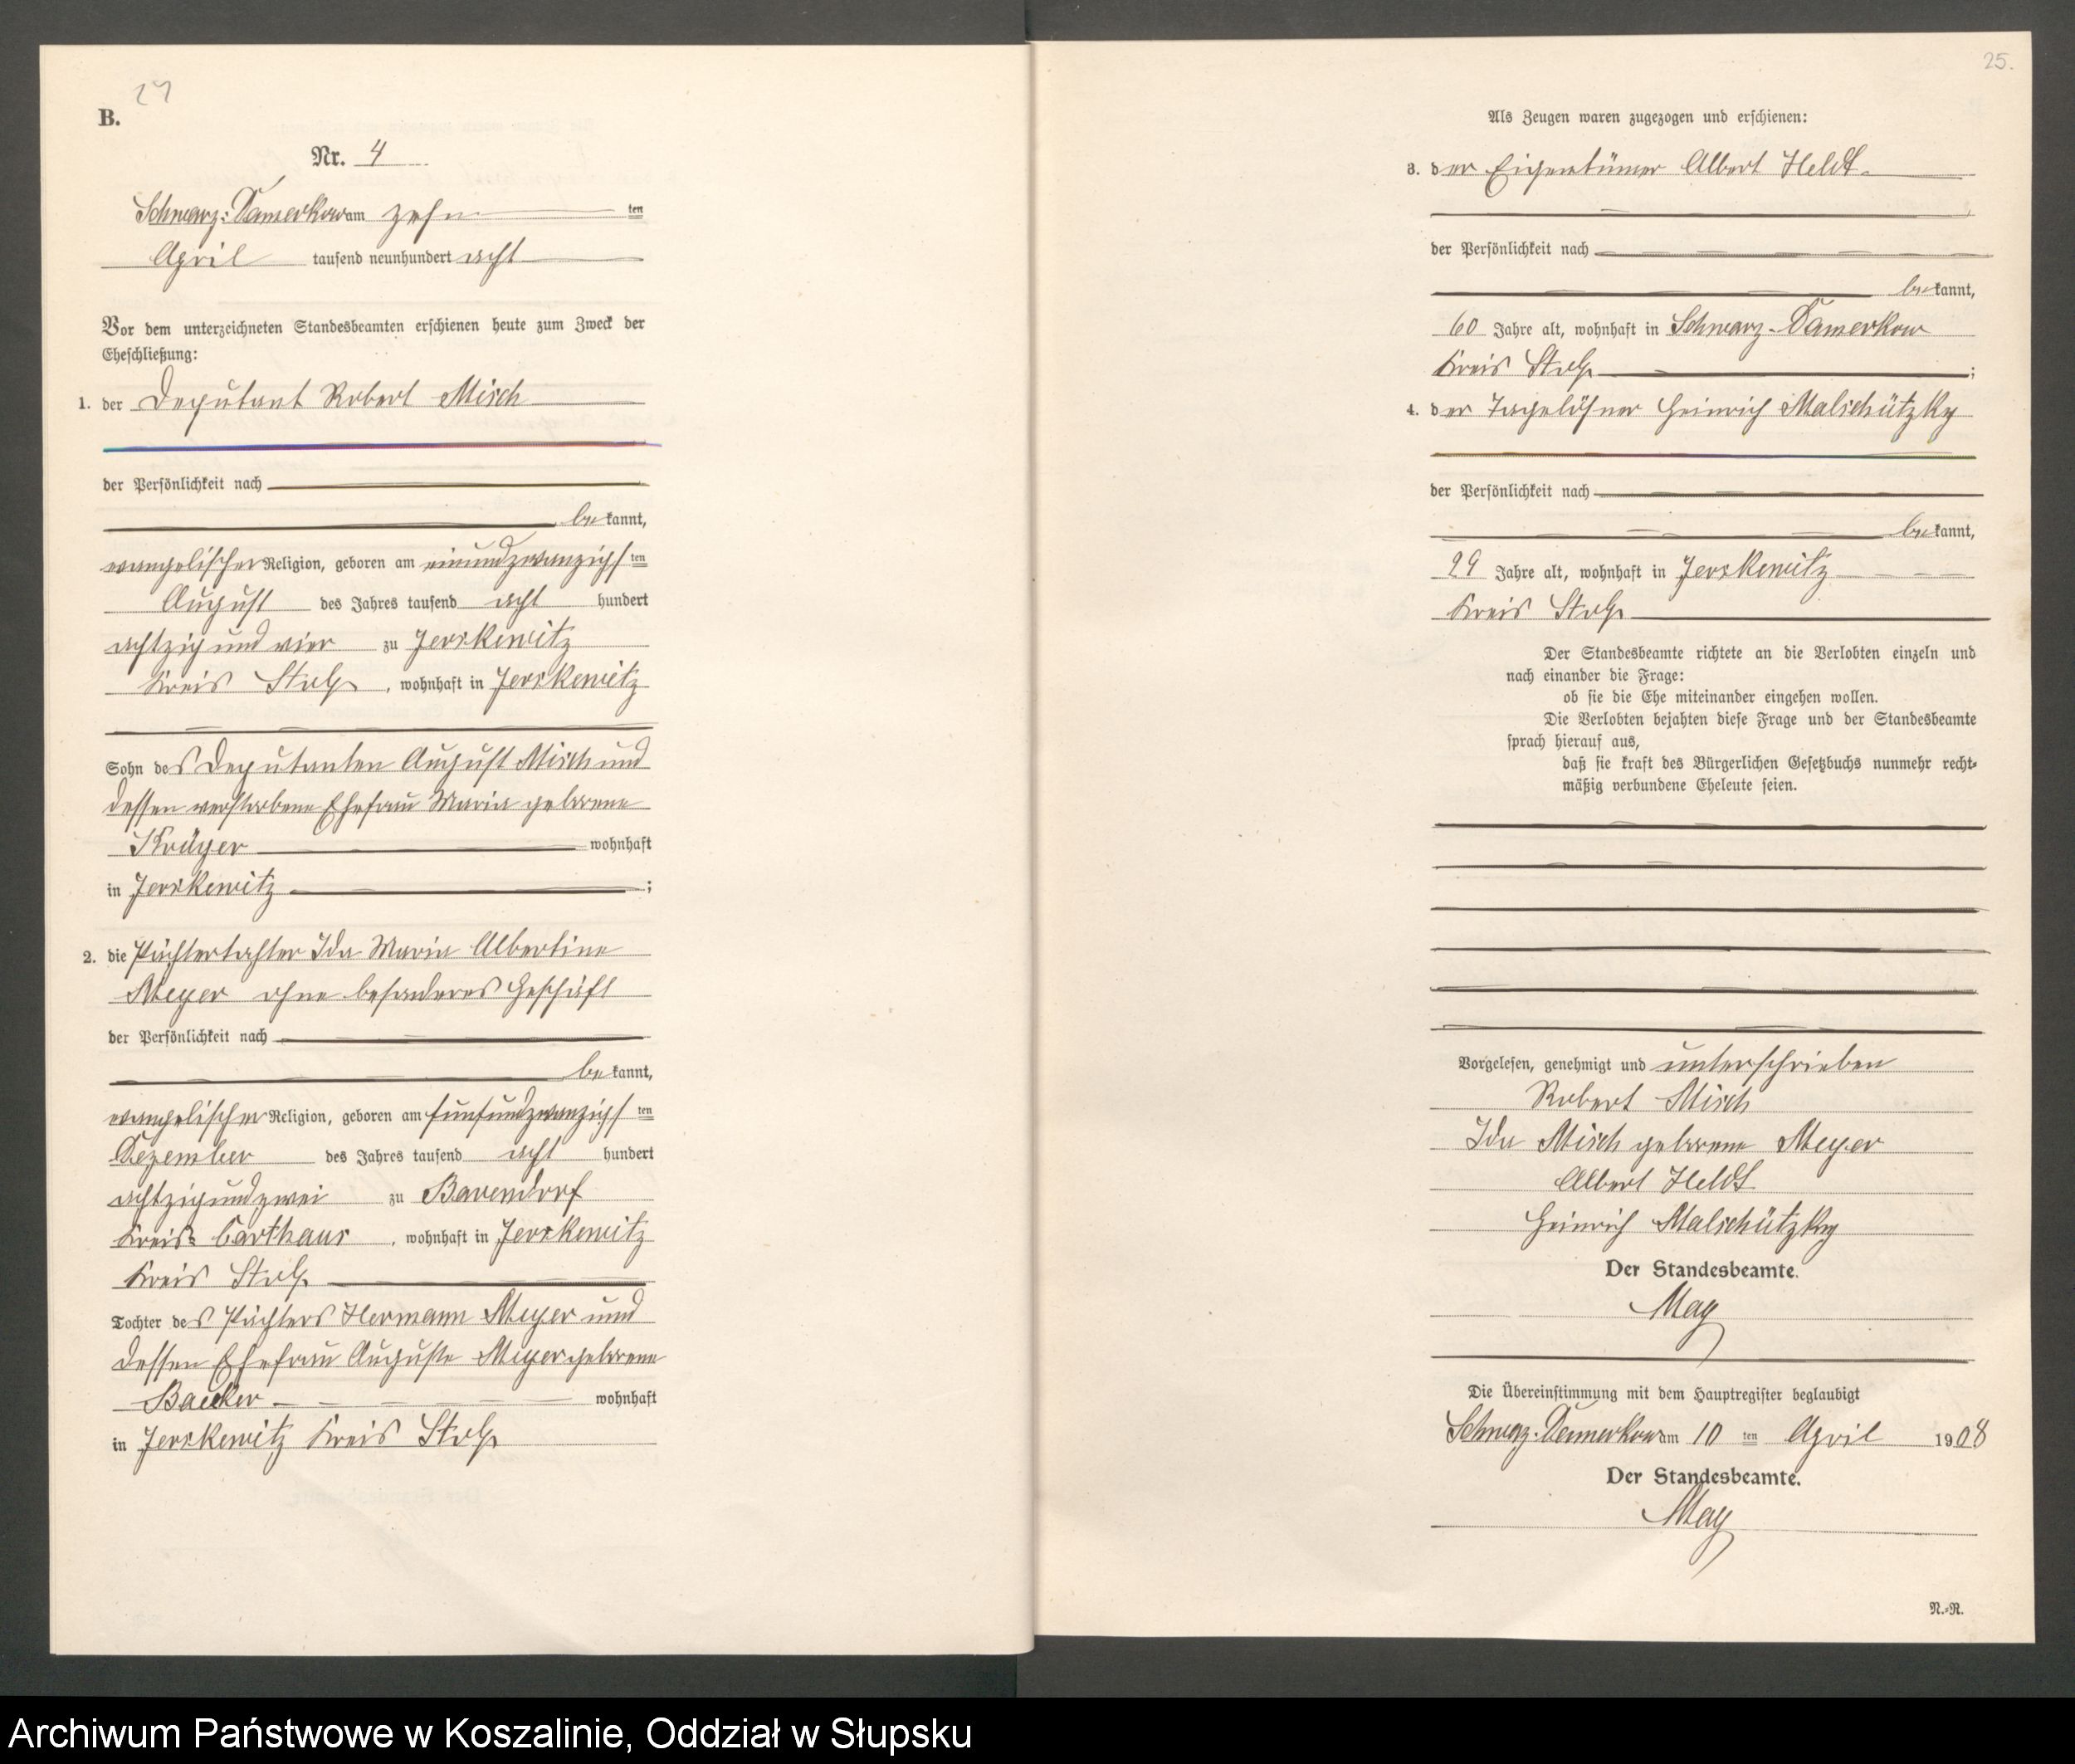 B.
Nr. 4
Schwarz-Damerkow am zehn ten
April tausend neunhundert acht
Vor dem unterzeichneten Standesbeamten erschienen heute zum Zweck der
Eheschließung:
1. der Deputant Robert Misch
der Persönlichkeit nach
be kannt,
evangelischer Religion, geboren am einundzwanzigsten
August des Jahres tausend acht hundert
achtzig und vier zu Jerskewitz
Kreis Stolp, wohnhaft in Jerskewitz
Sohn des Deputanten August Misch und
dessen verstorbene Ehefrau Maria geborene
Krüger wohnhaft
in Jerskewitz ;
2. die Pächtertochter Ida Maria Albertine
Meyer ohne besonderes Geschäft
der Persönlichkeit nach
be kannt,
evangelischer Religion, geboren am fünfundzwanzigsten
Dezember des Jahres tausend acht hundert
achtzigundzwei zu Barendorf
Kreis Carthaus, wohnhaft in Jerskewitz
Kreis Stolp
Tochter des Pächters Hermann Meyer und
dessen Ehefrau Auguste Meyer geborene
Baecker wohnhaft
in Jerskewitz Kreis Stolp
25.
Als Zeugen waren zugezogen und erschienen:
3. der Eigentümer Albert Heldt
der Persönlichkeit nach
be kannt,
60 Jahre alt, wohnhaft in Schwarz-Damerkow
Kreis Stolp ;
4. der Tagelöhner Heinrich Malschützky
der Persönlichkeit nach
be kannt,
29 Jahre alt, wohnhaft in Jerskewitz
Kreis Stolp
Der Standesbeamte richtete an die Verlobten einzeln und
nach einander die Frage:
ob sie die Ehe miteinander eingehen wollen.
Die Verlobten bejahten diese Frage und der Standesbeamte
sprach hierauf aus,
daß sie kraft des Bürgerlichen Gesetzbuchs nunmehr recht-
mäßig verbundene Eheleute seien.
Vorgelesen, genehmigt und unterschrieben
Robert Misch
Ida Misch geborene Meyer
Albert Heldt
Heinrich Malschützky
Der Standesbeamte.
May
Die Übereinstimmung mit dem Hauptregister beglaubigt
Schwarz-Damerkow am 10 ten April 1908
Der Standesbeamte.
May
N.-R.
Archiwum Państwowe w Koszalinie, Oddział w Słupsku